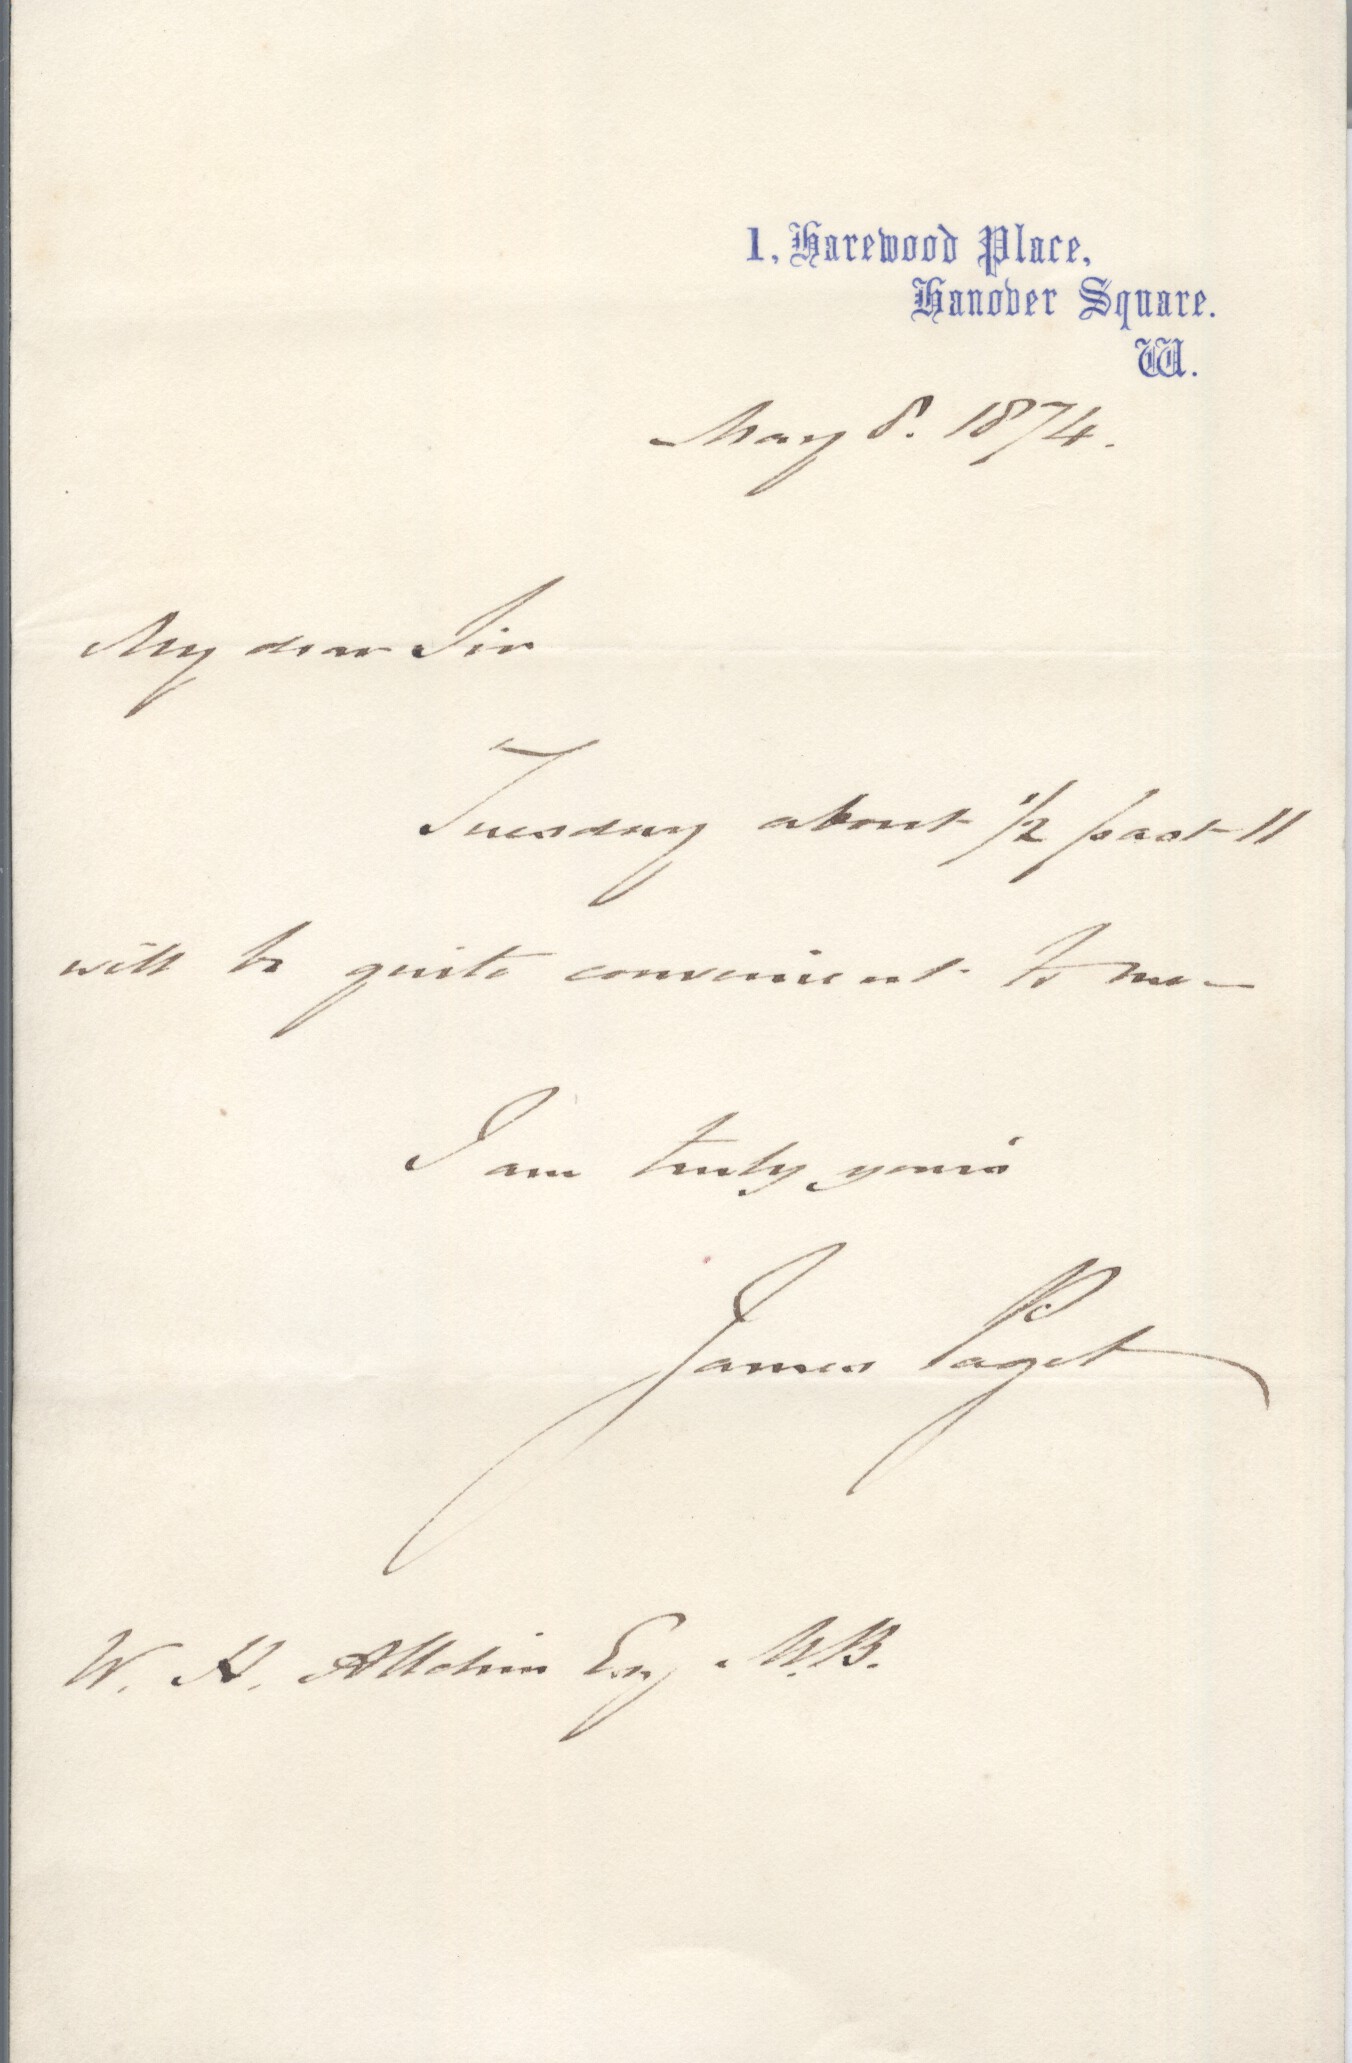 1, Harewood Place,
Hanover Square.
W.
May 8. 1874.
My dear Sir
Tuesday about 1/2 past 11
will be quite convenient to me –
I am truly yours
James Paget
W. H. Allchin Esq M.B.